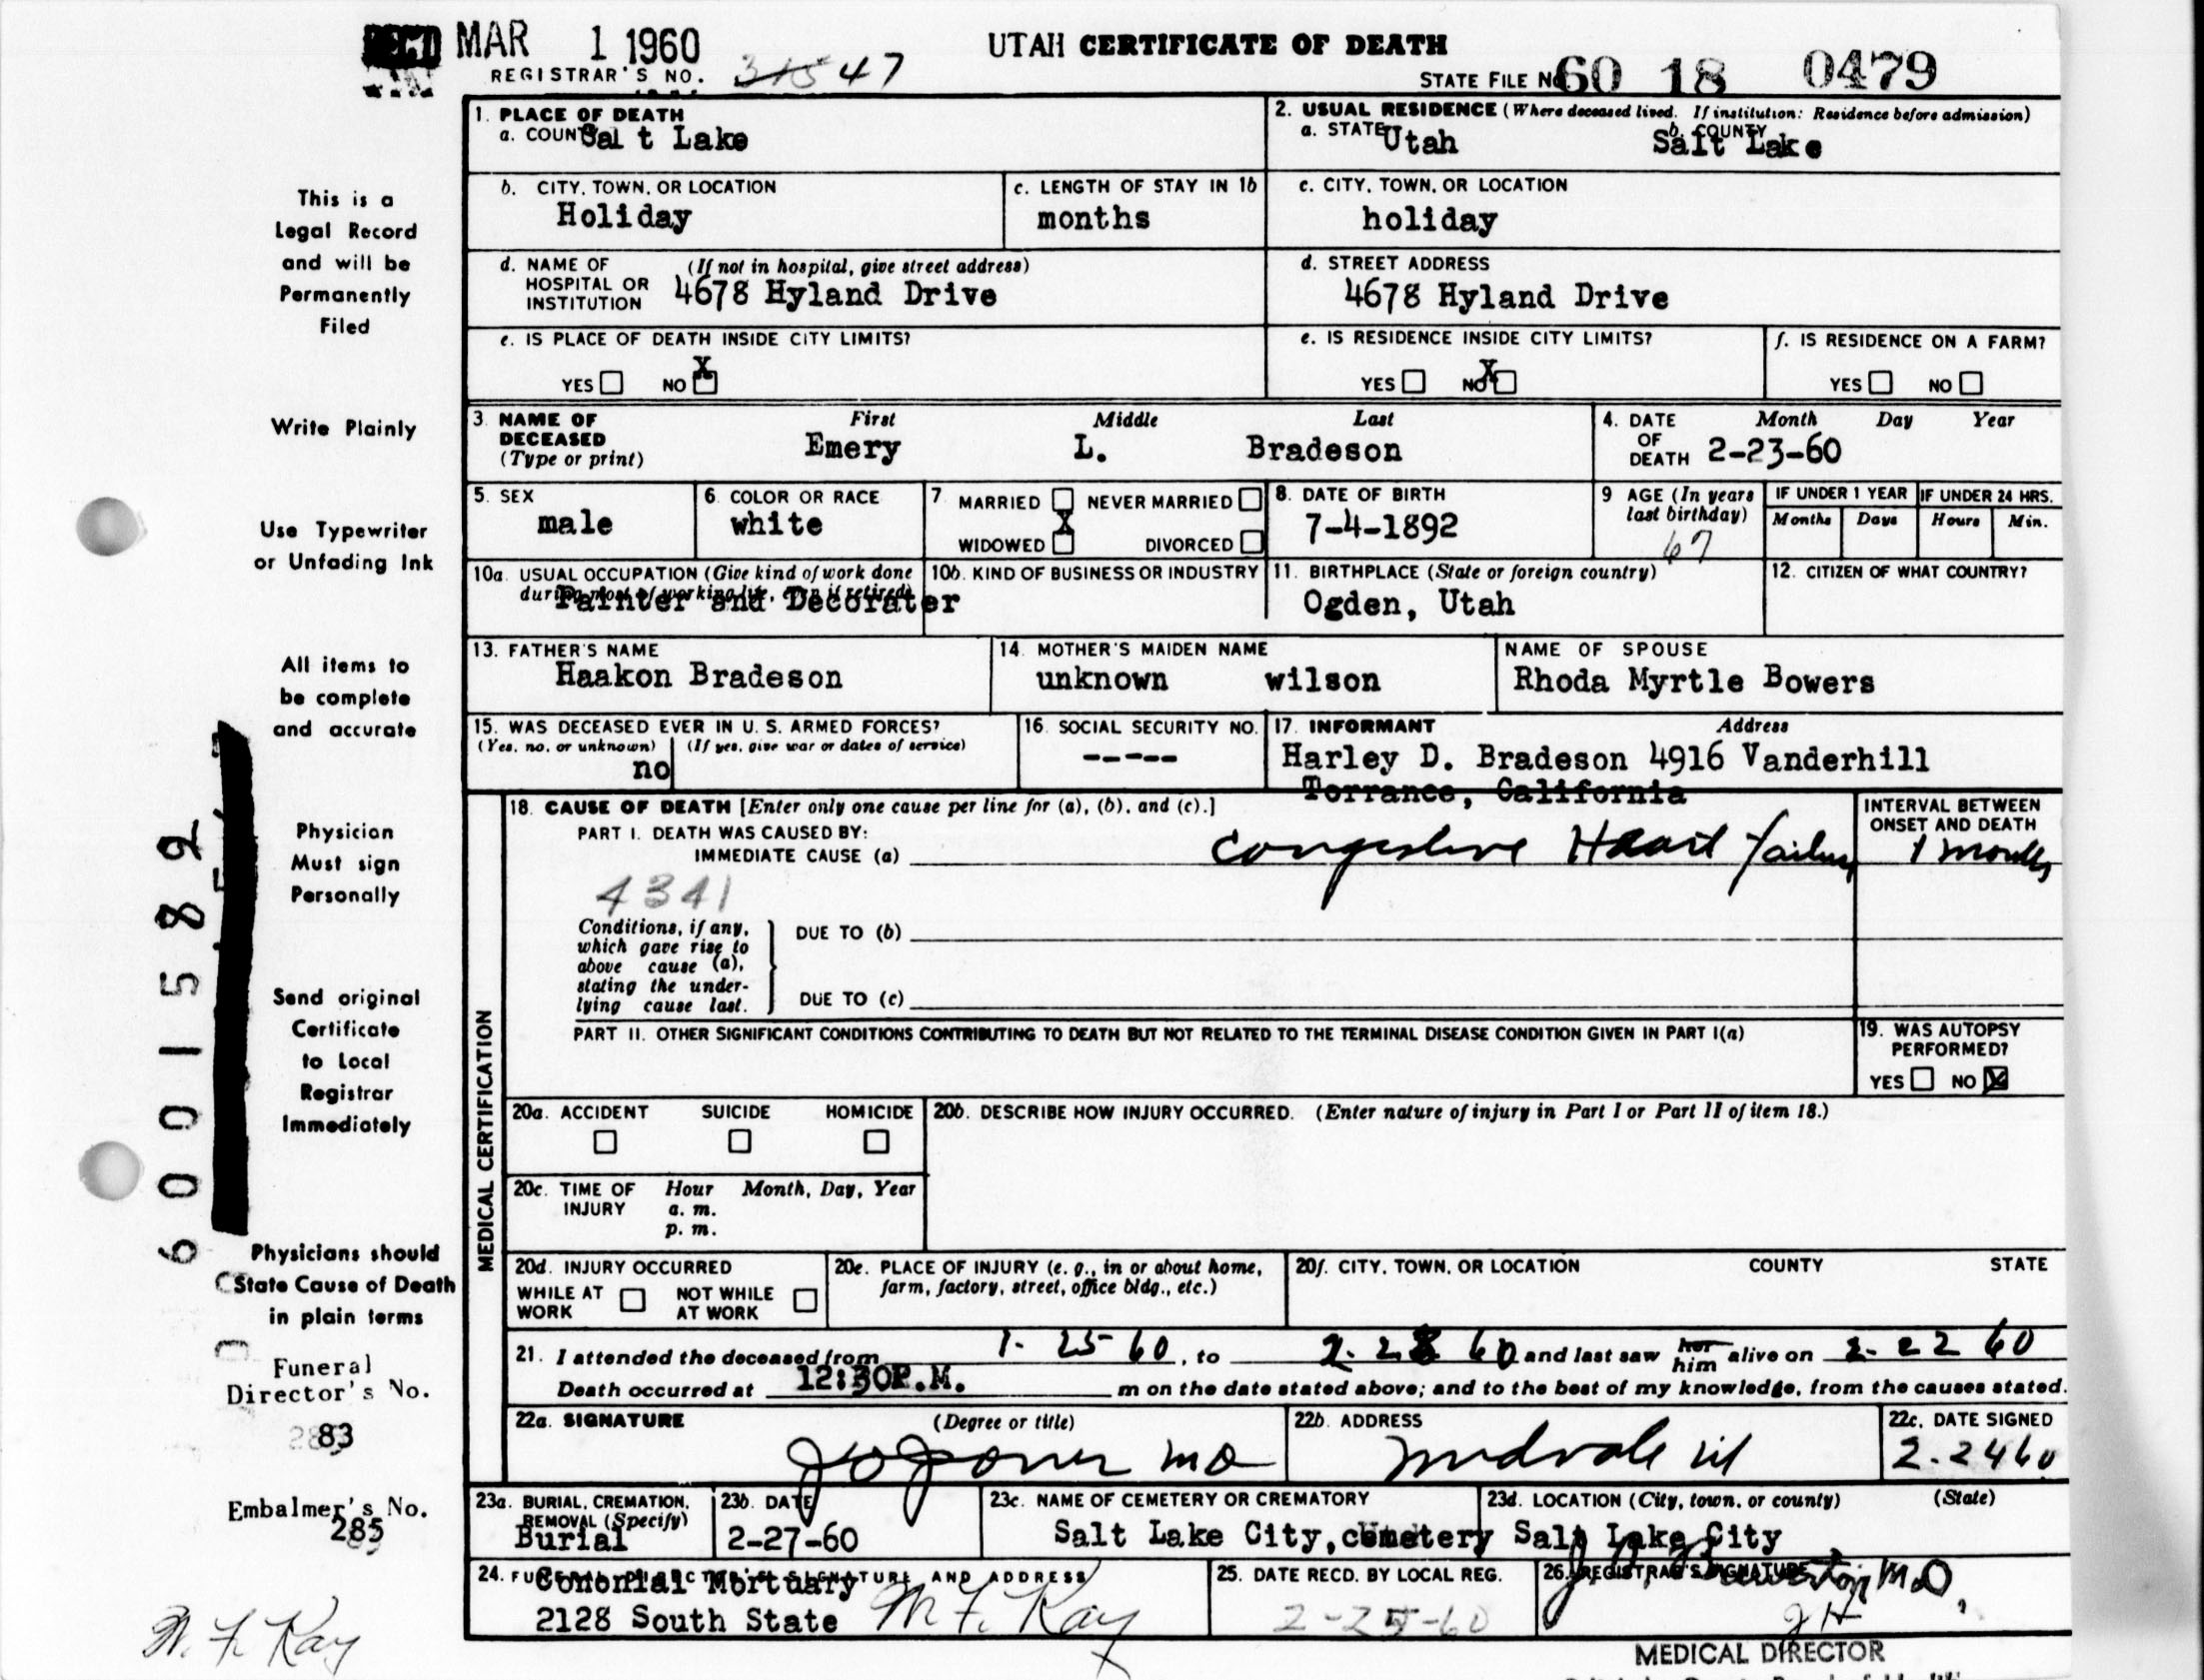 REC'D MAR 1 1960
UTAH CERTIFICATE OF DEATH
REGISTRAR'S NO. 47
STATE FILE No. 60 18 0479
1. PLACE OF DEATH
a. COUNTY Salt Lake
2. USUAL RESIDENCE (Where deceased lived. If institution: Residence before admission)
a. STATE Utah b. COUNTY Salt Lake
b. CITY, TOWN, OR LOCATION Holiday
c. LENGTH OF STAY IN 1b months
c. CITY, TOWN, OR LOCATION holiday
d. NAME OF HOSPITAL OR INSTITUTION (If not in hospital, give street address) 4678 Hyland Drive
d. STREET ADDRESS 4678 Hyland Drive
e. IS PLACE OF DEATH INSIDE CITY LIMITS? YES NO X
e. IS RESIDENCE INSIDE CITY LIMITS? YES NO X
f. IS RESIDENCE ON A FARM? YES NO
3. NAME OF DECEASED (Type or print)
First Middle Last
Emery L. Bradeson
4. DATE OF DEATH Month Day Year
2-23-60
5. SEX male
6. COLOR OR RACE white
7. MARRIED NEVER MARRIED
WIDOWED X DIVORCED
8. DATE OF BIRTH 7-4-1892
9 AGE (In years last birthday) 67
IF UNDER 1 YEAR Months Days
IF UNDER 24 HRS. Hours Min.
10a. USUAL OCCUPATION (Give kind of work done during most of working life, even if retired) Painter and Decorater
10b. KIND OF BUSINESS OR INDUSTRY
11. BIRTHPLACE (State or foreign country) Ogden, Utah
12. CITIZEN OF WHAT COUNTRY?
13. FATHER'S NAME Haakon Bradeson
14. MOTHER'S MAIDEN NAME unknown wilson
NAME OF SPOUSE Rhoda Myrtle Bowers
15. WAS DECEASED EVER IN U. S. ARMED FORCES?
(Yes, no, or unknown) (If yes, give war or dates of service)
no
16. SOCIAL SECURITY NO. -----
17. INFORMANT Address
Harley D. Bradeson 4916 Vanderhill
Torrance, California
MEDICAL CERTIFICATION
18. CAUSE OF DEATH [Enter only one cause per line for (a), (b), and (c).]
PART I. DEATH WAS CAUSED BY:
IMMEDIATE CAUSE (a) Congestive Heart failure
INTERVAL BETWEEN ONSET AND DEATH
1 month
4341
Conditions, if any, which gave rise to above cause (a), stating the underlying cause last.
DUE TO (b)
DUE TO (c)
PART II. OTHER SIGNIFICANT CONDITIONS CONTRIBUTING TO DEATH BUT NOT RELATED TO THE TERMINAL DISEASE CONDITION GIVEN IN PART I(a)
19. WAS AUTOPSY PERFORMED?
YES NO X
20a. ACCIDENT SUICIDE HOMICIDE
20b. DESCRIBE HOW INJURY OCCURRED. (Enter nature of injury in Part I or Part II of item 18.)
20c. TIME OF INJURY Hour Month, Day, Year
a. m.
p. m.
20d. INJURY OCCURRED
WHILE AT WORK NOT WHILE AT WORK
20e. PLACE OF INJURY (e. g., in or about home, farm, factory, street, office bldg., etc.)
20f. CITY, TOWN, OR LOCATION COUNTY STATE
21. I attended the deceased from 1-25-60, to 2-23 60 and last saw her him alive on 2-22 60
Death occurred at 12:30P.M. m on the date stated above; and to the best of my knowledge, from the causes stated.
22a. SIGNATURE (Degree or title) MD
22b. ADDRESS Midvale Ut
22c. DATE SIGNED 2-24 60
23a. BURIAL, CREMATION, REMOVAL (Specify) Burial
23b. DATE 2-27-60
23c. NAME OF CEMETERY OR CREMATORY Salt Lake City, cemetery
23d. LOCATION (City, town, or county) (State) Salt Lake City
24. FUNERAL DIRECTOR'S SIGNATURE AND ADDRESS
Cononial Mortuary
2128 South State M. F. Kay
25. DATE RECD. BY LOCAL REG. 2-25-60
26. REGISTRAR'S SIGNATURE M.D.
MEDICAL DIRECTOR
This is a
Legal Record
and will be
Permanently
Filed
Write Plainly
Use Typewriter
or Unfading Ink
All items to
be complete
and accurate
Physician
Must sign
Personally
Send original
Certificate
to Local
Registrar
Immediately
Physicians should
State Cause of Death
in plain terms
Funeral
Director's No.
83
Embalmer's No.
285
M. F. Kay
6001582